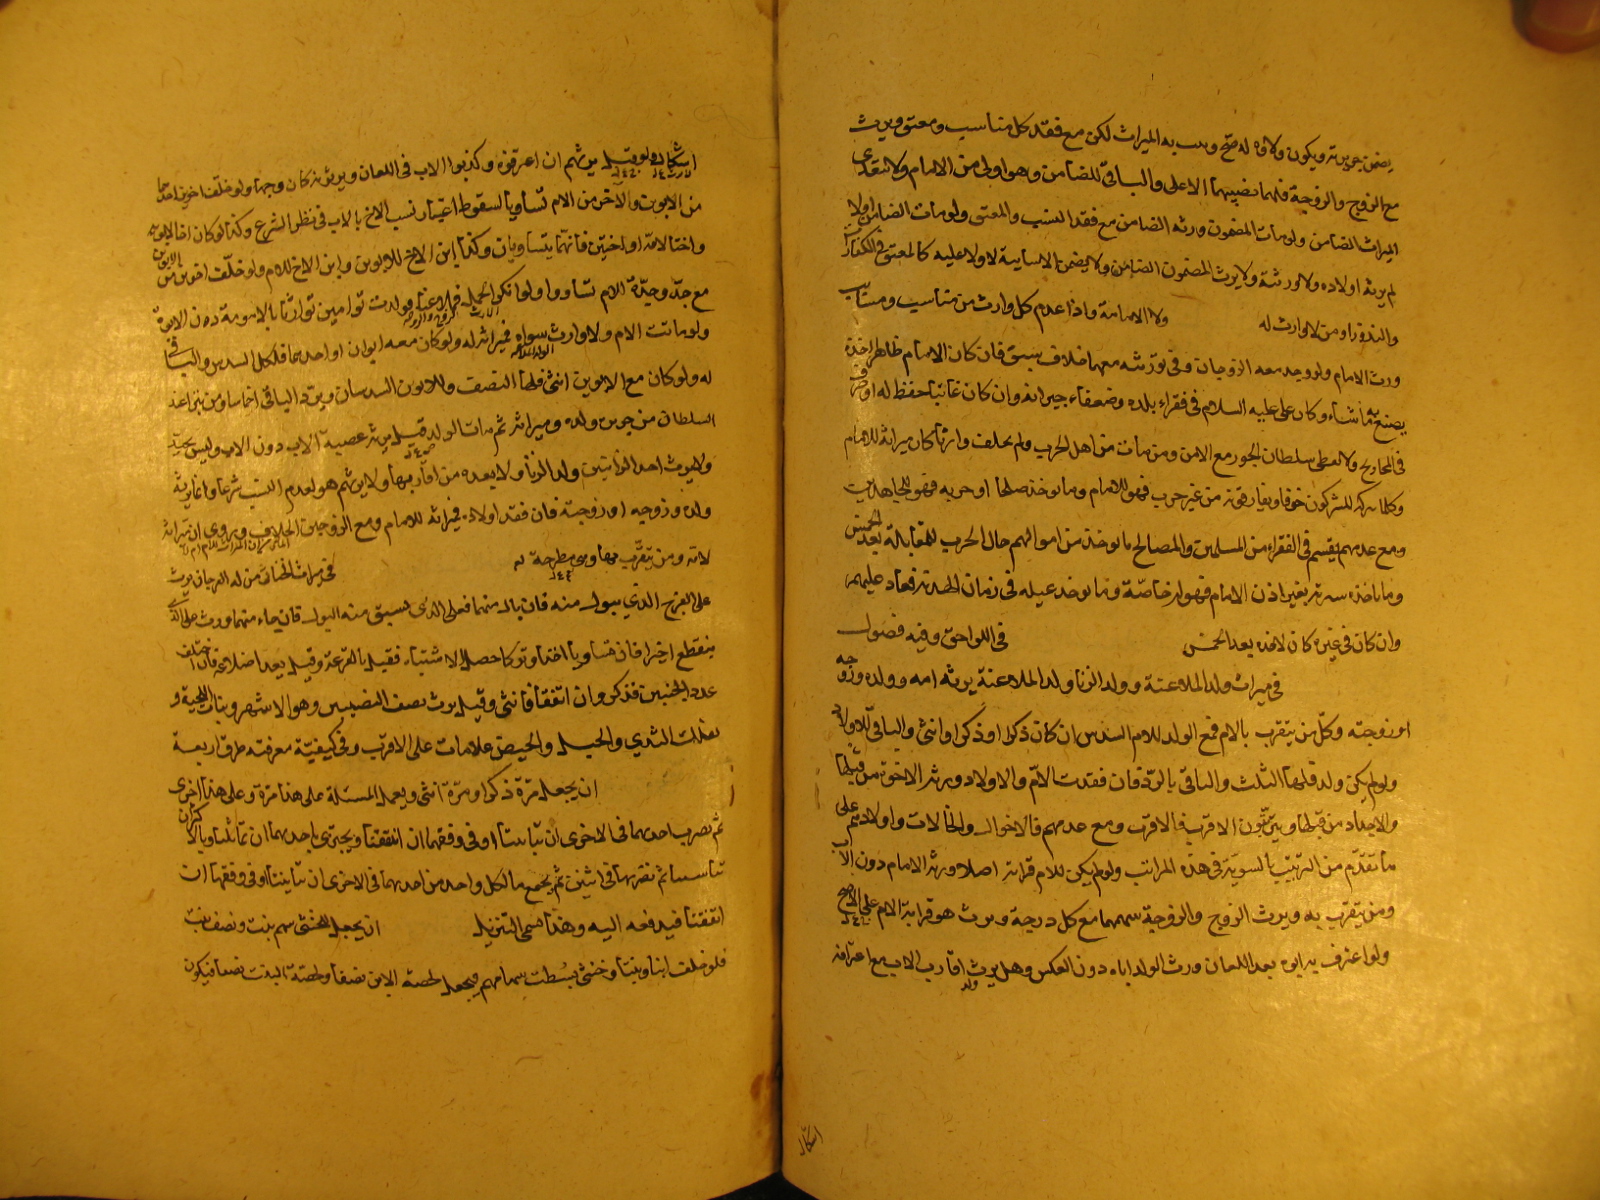 يضمن جريرته ويكون ولاؤه له صح ويثبت به الميراث لكن مع فقد كل مناسب ومعتق ويرث
مع الزوج والزوجة فلهما نصيبهما الاعلى والباقي للضامن وهو اولى من الامام ولا يتعدى
الميراث الضامن ولو مات المضمون ورثه الضامن مع فقد النسب والمعتق ولو مات الضامن اولا
لم يرثه اولاده ولا ورثته ولا يرث المضمون الضامن ولا يضمن الا سايبة لا ولاء عليه كالمعتق في الكفارات
والنذور او من لا وارث له ولاء الامامة فاذا عدم كل وارث من مناسب ومسابب
ورث الامام ولو وجد معه الزوجان وفي توريثه معهما خلاف سبق فان كان الامام ظاهرا اخذه
يصنع به ما شاء وكان علي عليه السلام في فقراء بلده وضعفاء جيرانه وان كان غائبا حفظ له او صرف
في المحاويج ولا يعطى سلطان الجور مع الامن ومن مات من اهل الحرب ولم يخلف وارثا كان ميراثه للامام
وكلما يتركه المشركون خوفا ويفارقونه من غير حرب فهو للامام وما يوخذ صلحا او جزية فهو للمجاهدين
ومع عدمهم يقسم في الفقراء من المسلمين والمصالح ما يوخذ من اموالهم حال الحرب للمقاتلة بعد الخمس
وما ياخذه سرية بغير اذن الامام فهو له خاصة وما يوخذ غيلة في زمان الهدنة يعاد عليهم
وان كان في غيره كان لاخذه بعد الخمس في اللواحق وفيه فصول
في ميراث ولد الملاعنة وولد الزنا ولد الملاعنة يرثه امه وولده وزوجه
او زوجته وكل من يتقرب بالام فمع الولد للام السدس ان كان ذكرا او ذكرا وانثى والباقي للاولاد
ولو لم يكن ولد فلها الثلث والباقي بالرد فان فقدت الام والاولاد ورثه الاخوة من قبلها
والاجداد من قبلها ويترتبون الاقرب فالاقرب ومع عدمهم فالاخوال والخالات واولادهم على
ما تقدم من الترتيب بالسوية في هذه المراتب ولو لم يكن للام قرابة اصلا ورثه الامام دون الاب
ومن يتقرب به ويرث الزوج والزوجة سهمهما مع كل درجة ويرث هو قرابة الام على الاصح
ولو اعترف به ابوه بعد اللعان ورث الولد اباه دون العكس وهل يرث اقارب الاب مع اعترافه
اشكال
اشكال ولو قيل يرثهم ان اعترفوا به وكذبوا الاب في اللعان ويرثونه كان وجها ولو خلف اخوين احدهما
من الابوين والاخر من الام تساويا لسقوط اعتبار نسب الاخ بالاب في نظر الشرع وكذا لو كان اخا لابويه
واختا لامه او اختين فانهما يتساويان وكذا ابن الاخ للابوين وابن الاخ للام ولو خلف اخوين من
مع جد وجدة الام تساووا ولو انكر الحمل فلاعنها فولدت توأمين توارثا بالامومة دون الابوة
ولو ماتت الام ولا وارث سواه فميراثه له ولو كان معه ابوان او احدهما فلكل السدس والباقي
له ولو كان مع الابوين انثى فلها النصف وللابوين السدسان ويرد الباقي اخماسا ومن تبرأ عند
السلطان من جريرة ولده وميراثه ثم مات الولد قيل يرثه عصبة الاب دون الاب وليس بجيد
ولا يرث احد الزانيين ولد الزنا ولا يعده من اقاربهما ولا يرثهم هو لعدم النسب شرعا وانما يرثه
ولده وزوجه او زوجته فان فقد اولاده فميراثه للامام ومع الزوجين الخلاف ويروى ان ميراثه
لامه ومن يتقرب بها وهي مطرحة في ميراث الخناثى من له الفرجان يورث
على الفرج الذي يبول منه فان بال منهما فعلى الذي يسبق منه البول فان جاء منهما ورث على الذي
ينقطع اخيرا فان تساويا اخذا وتركا حصل الاشتباه فقيل بالقرعة وقيل يعد اضلاعه فان اختلف
عدد الجنبين فذكر وان اتفقا فانثى وقيل يرث نصف النصيبين وهو الاشهر ونبات اللحية و
تفلك الثدي والحبل والحيض علامات على الاقرب وفي كيفية معرفته طرق اربعة
ان يجعل مرة ذكرا ومرة انثى ويعمل المسئلة على هذا مرة وعلى هذا اخرى
ثم تضرب احدهما في الاخرى ان تباينتا او في وفقهما ان اتفقتا ويجتزى باحدهما ان تماثلتا وبالاكثر ان
تناسبتا ثم تضربهما في اثنين ثم يجمع ما لكل واحد من احدهما في الاخرى ان تباينتا او في وفقها ان
اتفقتا فيدفعه اليه وهذا يسمى التنزيل ان يجعل للخنثى سهم بنت ونصف بنت
فلو خلف ابنا وبنتا وخنثى بسطت سهامهم فيجعل لحصة الابن نصفا ولحصة البنت نصفا فيكون